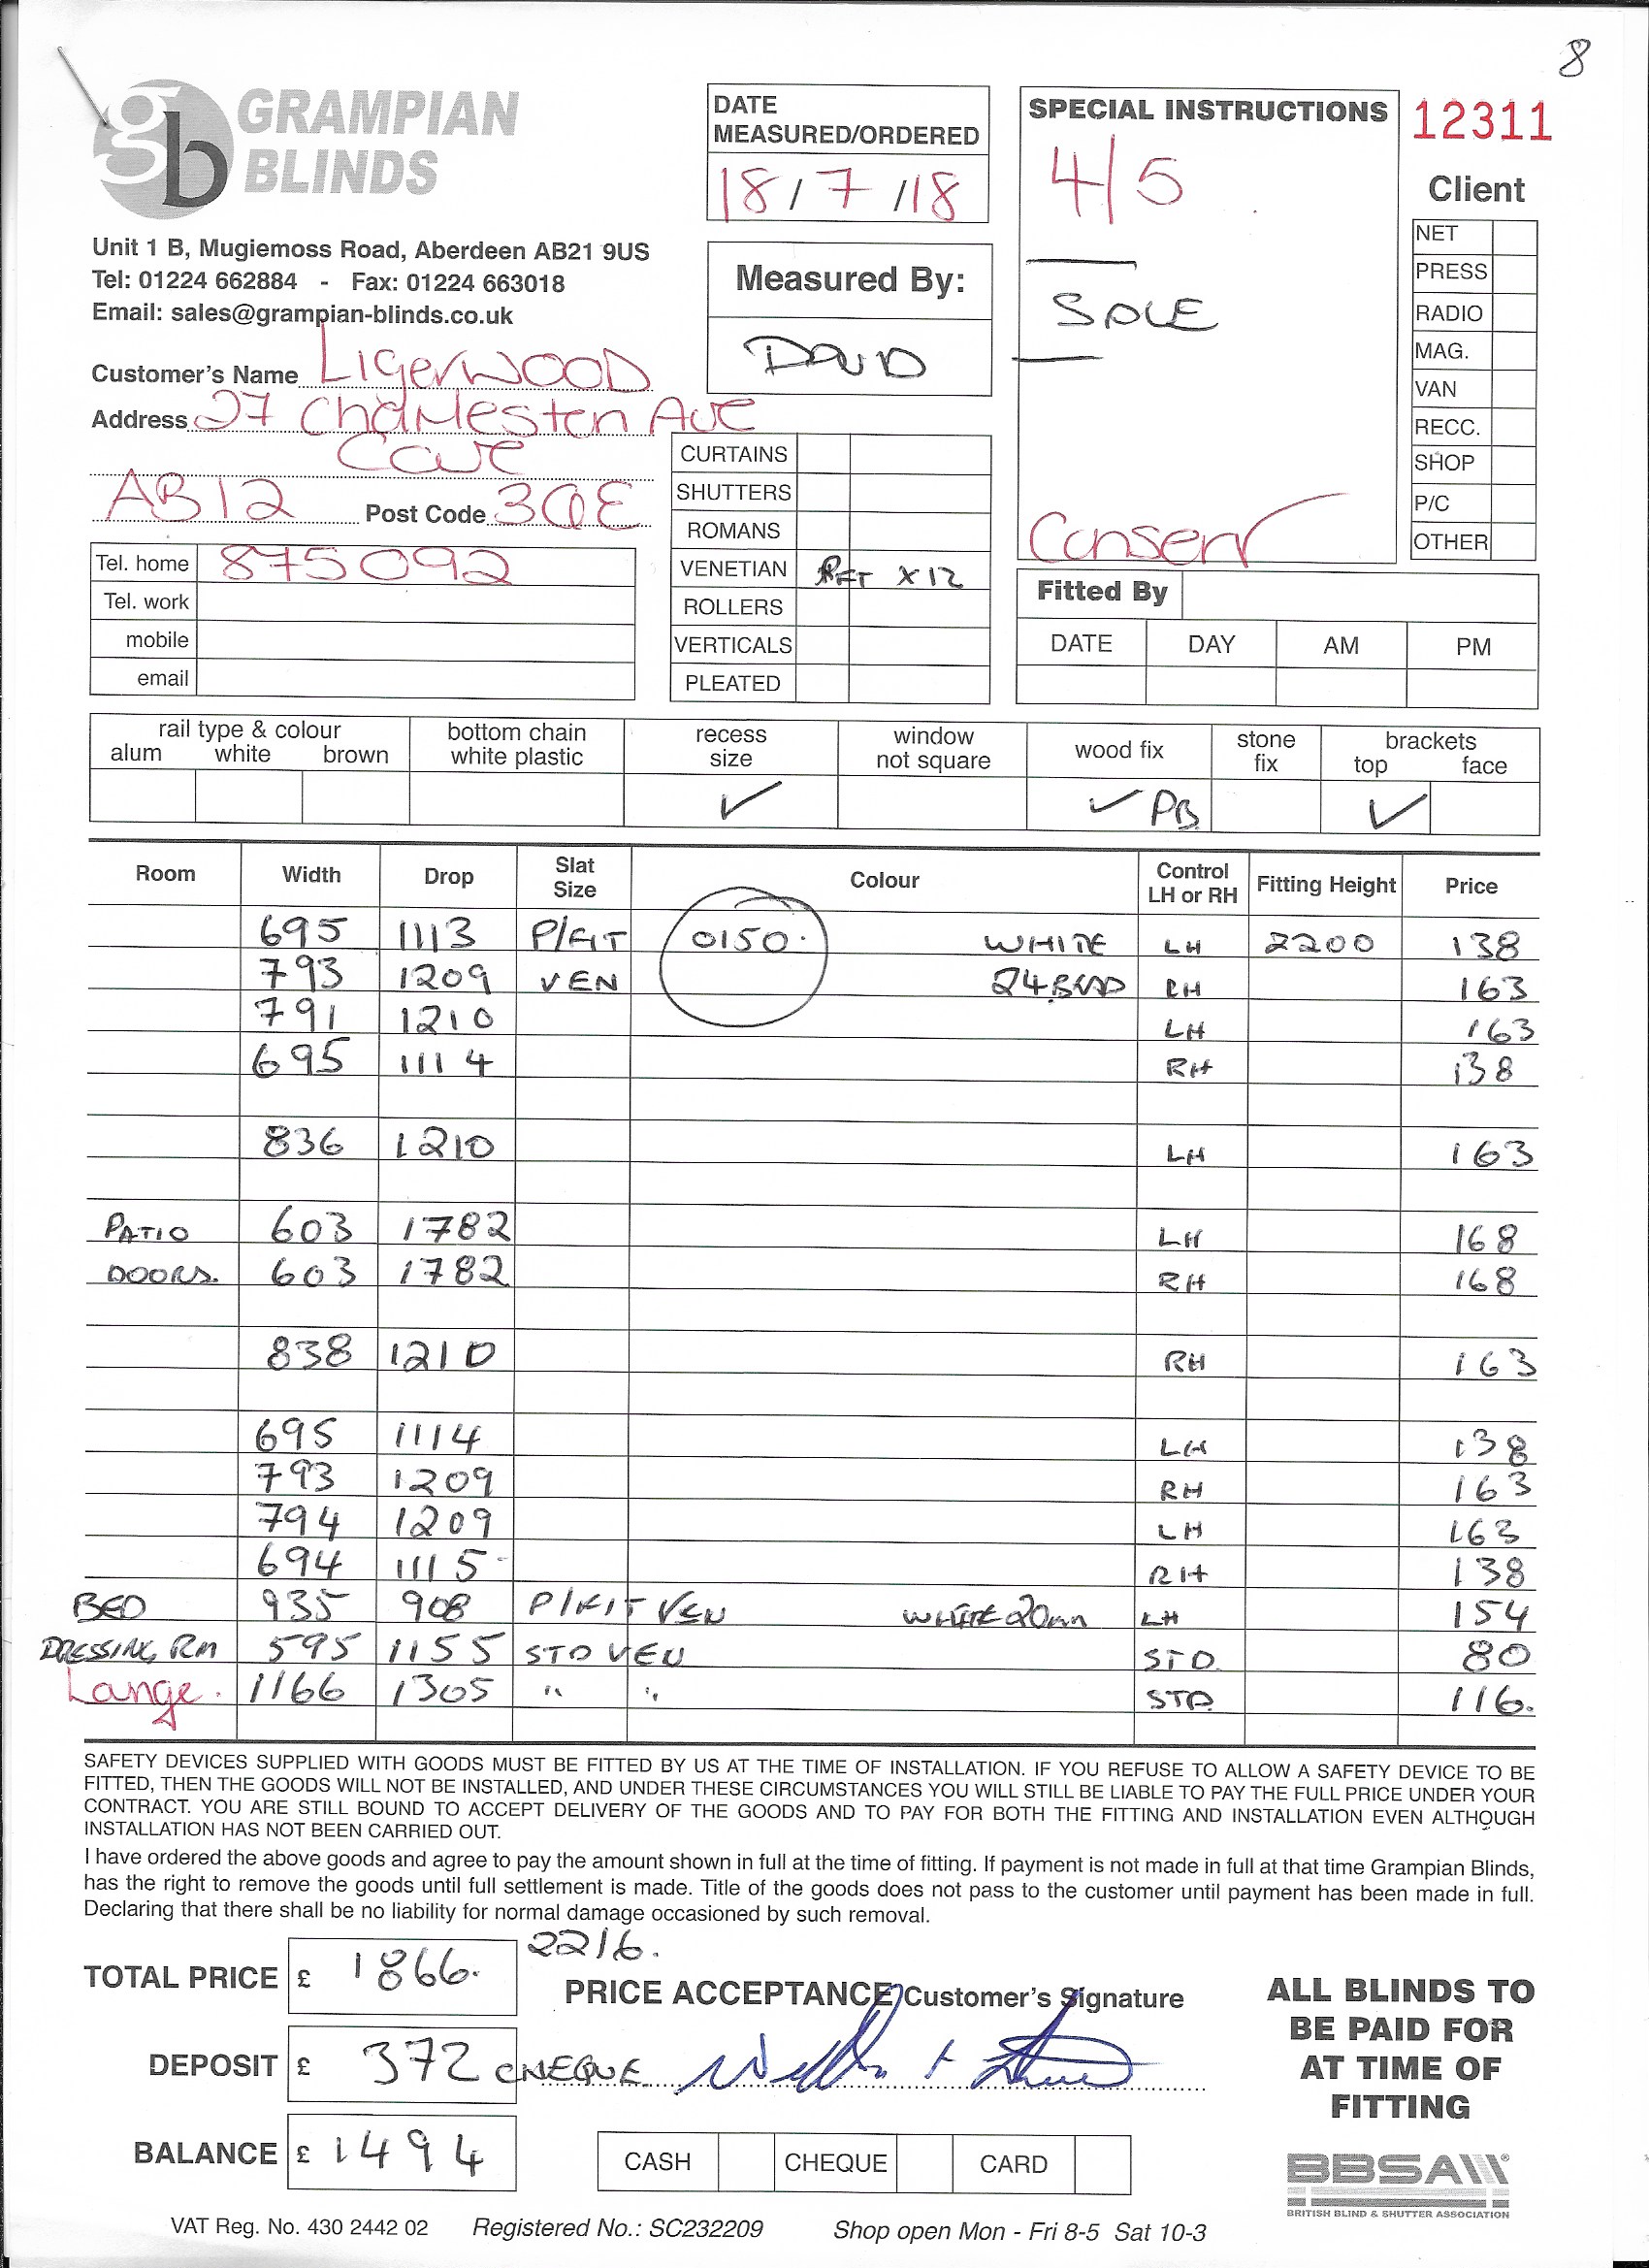 8
GRAMPIAN
BLINDS
gb
Unit 1 B, Mugiemoss Road, Aberdeen AB21 9US
Tel: 01224 662884 - Fax: 01224 663018
Email: sales@grampian-blinds.co.uk
Customer's Name Ligerwood
Address 27 Charleston Ave
Cove
AB12 Post Code 3QE
Tel. home 875092
Tel. work
mobile
email
DATE
MEASURED/ORDERED
18/7/18
Measured By:
DAVID
CURTAINS
SHUTTERS
ROMANS
VENETIAN PFT X12
ROLLERS
VERTICALS
PLEATED
SPECIAL INSTRUCTIONS
4/5
SALE
Conserv
12311
Client
NET
PRESS
RADIO
MAG.
VAN
RECC.
SHOP
P/C
OTHER
Fitted By
DATE DAY AM PM
rail type & colour
alum white brown
bottom chain
white plastic
recess
size ✓
window
not square
wood fix ✓ PB
stone
fix
brackets
top face
✓
Room Width Drop Slat Size Colour Control LH or RH Fitting Height Price
695 1113 P/FIT 0150. WHITE LH 2200 138
793 1209 VEN 24BND RH 163
791 1210 LH 163
695 1114 RH 138
836 1210 LH 163
PATIO 603 1782 LH 168
DOORS. 603 1782 RH 168
838 1210 RH 163
695 1114 LH 138
793 1209 RH 163
794 1209 LH 163
694 1115 RH 138
BED 935 908 P/FIT VEN WHITE 20mm LH 154
DRESSING RM 595 1155 STD VEN STD 80
Lange. 1166 1305 " " STD 116.
SAFETY DEVICES SUPPLIED WITH GOODS MUST BE FITTED BY US AT THE TIME OF INSTALLATION. IF YOU REFUSE TO ALLOW A SAFETY DEVICE TO BE
FITTED, THEN THE GOODS WILL NOT BE INSTALLED, AND UNDER THESE CIRCUMSTANCES YOU WILL STILL BE LIABLE TO PAY THE FULL PRICE UNDER YOUR
CONTRACT. YOU ARE STILL BOUND TO ACCEPT DELIVERY OF THE GOODS AND TO PAY FOR BOTH THE FITTING AND INSTALLATION EVEN ALTHOUGH
INSTALLATION HAS NOT BEEN CARRIED OUT.
I have ordered the above goods and agree to pay the amount shown in full at the time of fitting. If payment is not made in full at that time Grampian Blinds,
has the right to remove the goods until full settlement is made. Title of the goods does not pass to the customer until payment has been made in full.
Declaring that there shall be no liability for normal damage occasioned by such removal.
2216.
TOTAL PRICE £ 1866.
PRICE ACCEPTANCE Customer's Signature
DEPOSIT £ 372 CHEQUE
BALANCE £ 1494
CASH CHEQUE CARD
ALL BLINDS TO
BE PAID FOR
AT TIME OF
FITTING
BBSA
BRITISH BLIND & SHUTTER ASSOCIATION
VAT Reg. No. 430 2442 02 Registered No.: SC232209 Shop open Mon - Fri 8-5 Sat 10-3